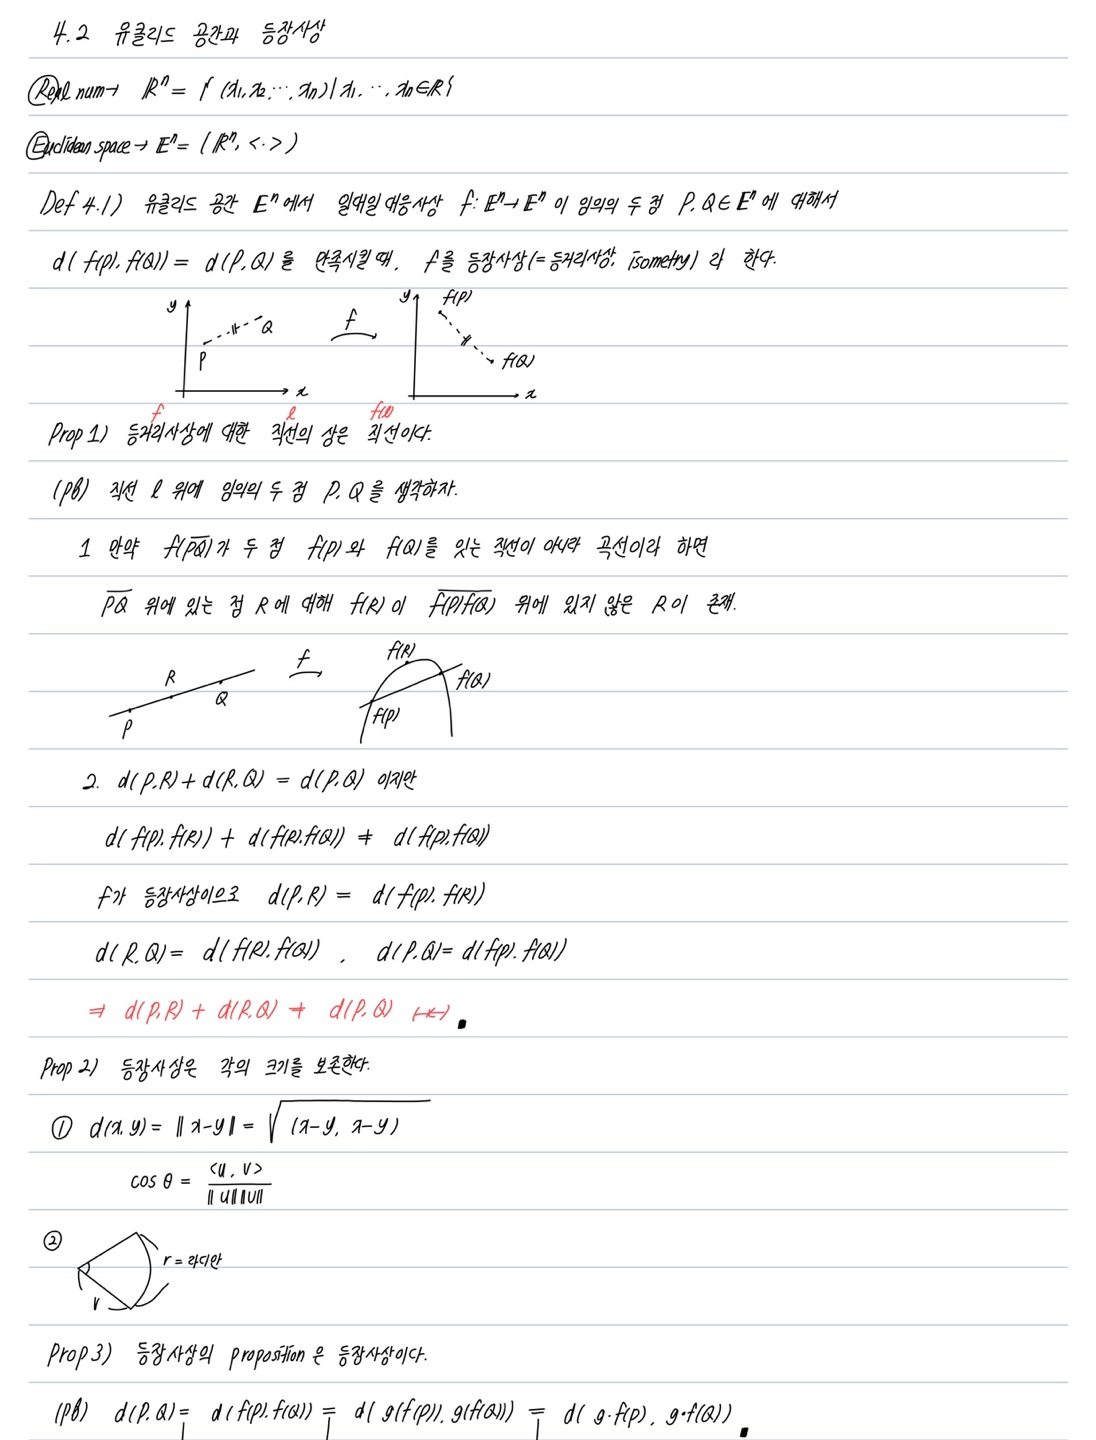 4.2 유클리드 공간과 등장사상
Real num → ℝⁿ = { (x₁, x₂, ⋯, xₙ) | x₁, ⋯, xₙ ∈ ℝ }
Euclidean space → 𝔼ⁿ = (ℝⁿ, < · >)
Def 4.1) 유클리드 공간 𝔼ⁿ에서 일대일 대응사상 f: 𝔼ⁿ → 𝔼ⁿ 이 임의의 두 점 P, Q ∈ 𝔼ⁿ에 대해서
d( f(P), f(Q)) = d(P, Q)를 만족시킬 때, f를 등장사상(=등거리사상, isometry) 라 한다.
y Q P x
f
y f(P) f(Q) x
f l f(l)
Prop 1) 등거리사상에 대한 직선의 상은 직선이다.
(pf) 직선 l 위에 임의의 두 점 P, Q를 생각하자.
1 만약 f(P̅Q̅)가 두 점 f(P)와 f(Q)를 잇는 직선이 아니라 곡선이라 하면
P̅Q̅ 위에 있는 점 R에 대해 f(R)이 f̅(̅P̅)̅f̅(̅Q̅)̅ 위에 있지 않은 R이 존재.
R Q P
f
f(R) f(Q) f(P)
2. d(P,R) + d(R,Q) = d(P,Q) 이지만
d( f(P), f(R)) + d( f(R), f(Q)) ≠ d( f(P), f(Q))
f가 등장사상이으로 d(P,R) = d( f(P), f(R))
d( R,Q) = d( f(R), f(Q)) , d(P,Q) = d( f(P), f(Q))
⇒ d(P,R) + d(R,Q) ≠ d(P,Q) (→←) ▪
Prop 2) 등장사상은 각의 크기를 보존한다.
① d(x, y) = ‖x-y‖ = √(x-y, x-y)
cos θ = <u, v> / ‖u‖‖v‖
②
r = 라디안
r
Prop 3) 등장사상의 proposition은 등장사상이다.
(pf) d(P,Q) = d( f(P), f(Q)) = d( g(f(P)), g(f(Q))) = d( g·f(P), g·f(Q)) ▪